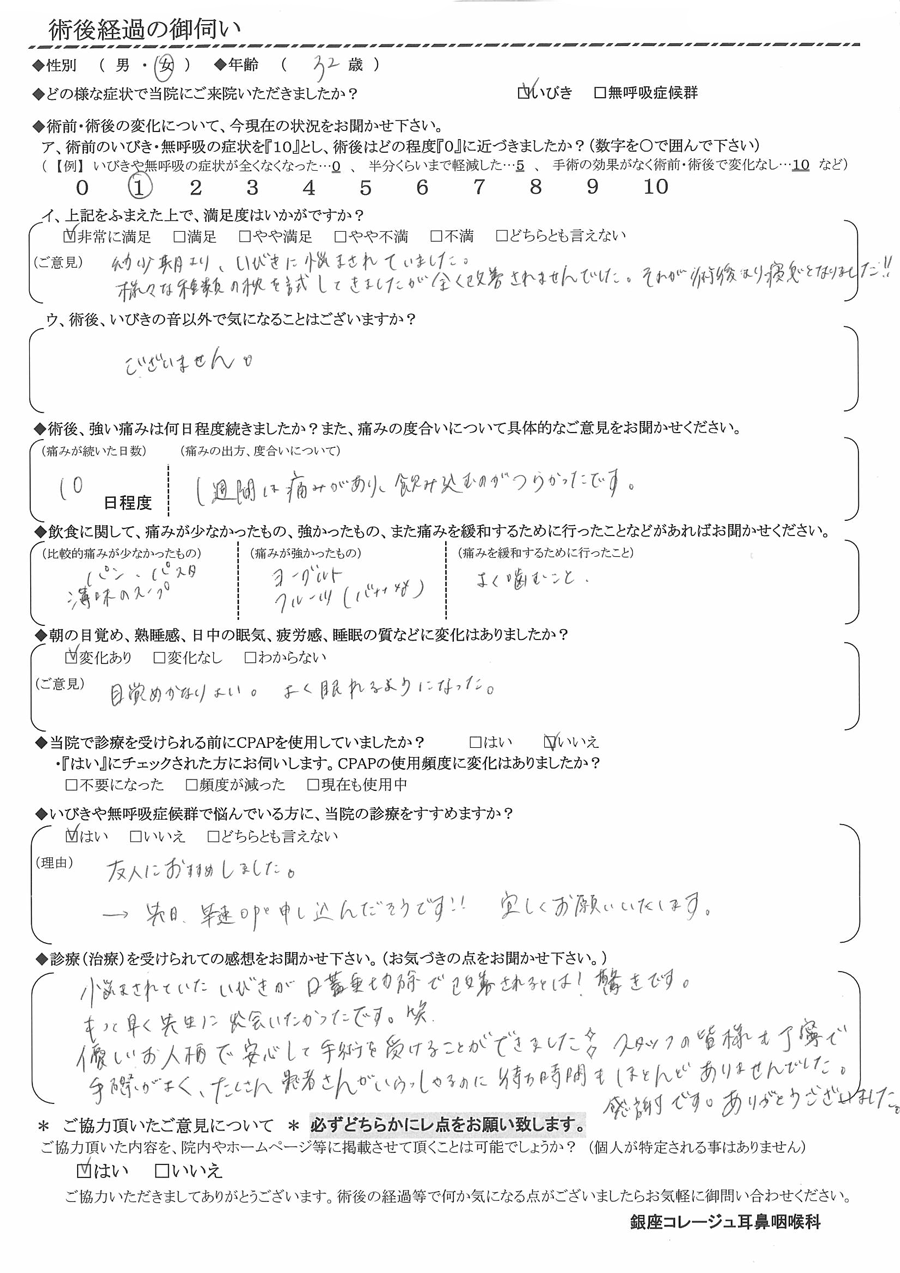 術後経過の御伺い
◆性別 ( 男 ・ 女 ) ◆年齢 ( 32 歳 )
◆どの様な症状で当院にご来院いただきましたか？ ☑いびき □無呼吸症候群
◆術前・術後の変化について、今現在の状況をお聞かせ下さい。
ア、術前のいびき・無呼吸の症状を『10』とし、術後はどの程度『0』に近づきましたか？(数字を〇で囲んで下さい)
(【例】 いびきや無呼吸の症状が全くなくなった…0 、 半分くらいまで軽減した…5 、 手術の効果がなく術前・術後で変化なし…10 など)
0 1 2 3 4 5 6 7 8 9 10
イ、上記をふまえた上で、満足度はいかがですか？
☑非常に満足 □満足 □やや満足 □やや不満 □不満 □どちらとも言えない
(ご意見) 幼少期より、いびきに悩まされていました。
様々な種類の枕を試してきましたが全く改善されませんでした。それが術後より寝息となりました!!
ウ、術後、いびきの音以外で気になることはございますか？
ございません。
◆術後、強い痛みは何日程度続きましたか？また、痛みの度合いについて具体的なご意見をお聞かせください。
(痛みが続いた日数) (痛みの出方、度合いについて)
10 日程度 1週間は痛みがあり、飲み込むのがつらかったです。
◆飲食に関して、痛みが少なかったもの、強かったもの、また痛みを緩和するために行ったことなどがあればお聞かせください。
(比較的痛みが少なかったもの) (痛みが強かったもの) (痛みを緩和するために行ったこと)
パン、パスタ ヨーグルト よく噛むこと、
薄味のスープ フルーツ(バナナなど)
◆朝の目覚め、熟睡感、日中の眠気、疲労感、睡眠の質などに変化はありましたか？
☑変化あり □変化なし □わからない
(ご意見) 目覚めかなりよい。 よく眠れるようになった。
◆当院で診療を受けられる前にCPAPを使用していましたか？ □はい ☑いいえ
・『はい』にチェックされた方にお伺いします。CPAPの使用頻度に変化はありましたか？
□不要になった □頻度が減った □現在も使用中
◆いびきや無呼吸症候群で悩んでいる方に、当院の診療をすすめますか？
☑はい □いいえ □どちらとも言えない
(理由) 友人におすすめしました。
→ 先日、早速op申し込んだそうです!! 宜しくお願いいたします。
◆診療(治療)を受けられての感想をお聞かせ下さい。(お気づきの点をお聞かせ下さい。)
悩まされていたいびきが口蓋垂切除で改善されるとは！驚きです。
もっと早く先生に出会いたかったです。笑
優しいお人柄で安心して手術を受けることができました☆ スタッフの皆様も丁寧で
手際がよく、たくさん患者さんがいらっしゃるのに待ち時間もほとんどありませんでした。
感謝です。ありがとうございました。
＊ ご協力頂いたご意見について ＊ 必ずどちらかにレ点をお願い致します。
ご協力頂いた内容を、院内やホームページ等に掲載させて頂くことは可能でしょうか？ (個人が特定される事はありません)
☑はい □いいえ
ご協力いただきましてありがとうございます。術後の経過等で何か気になる点がございましたらお気軽に御問い合わせください。
銀座コレージュ耳鼻咽喉科